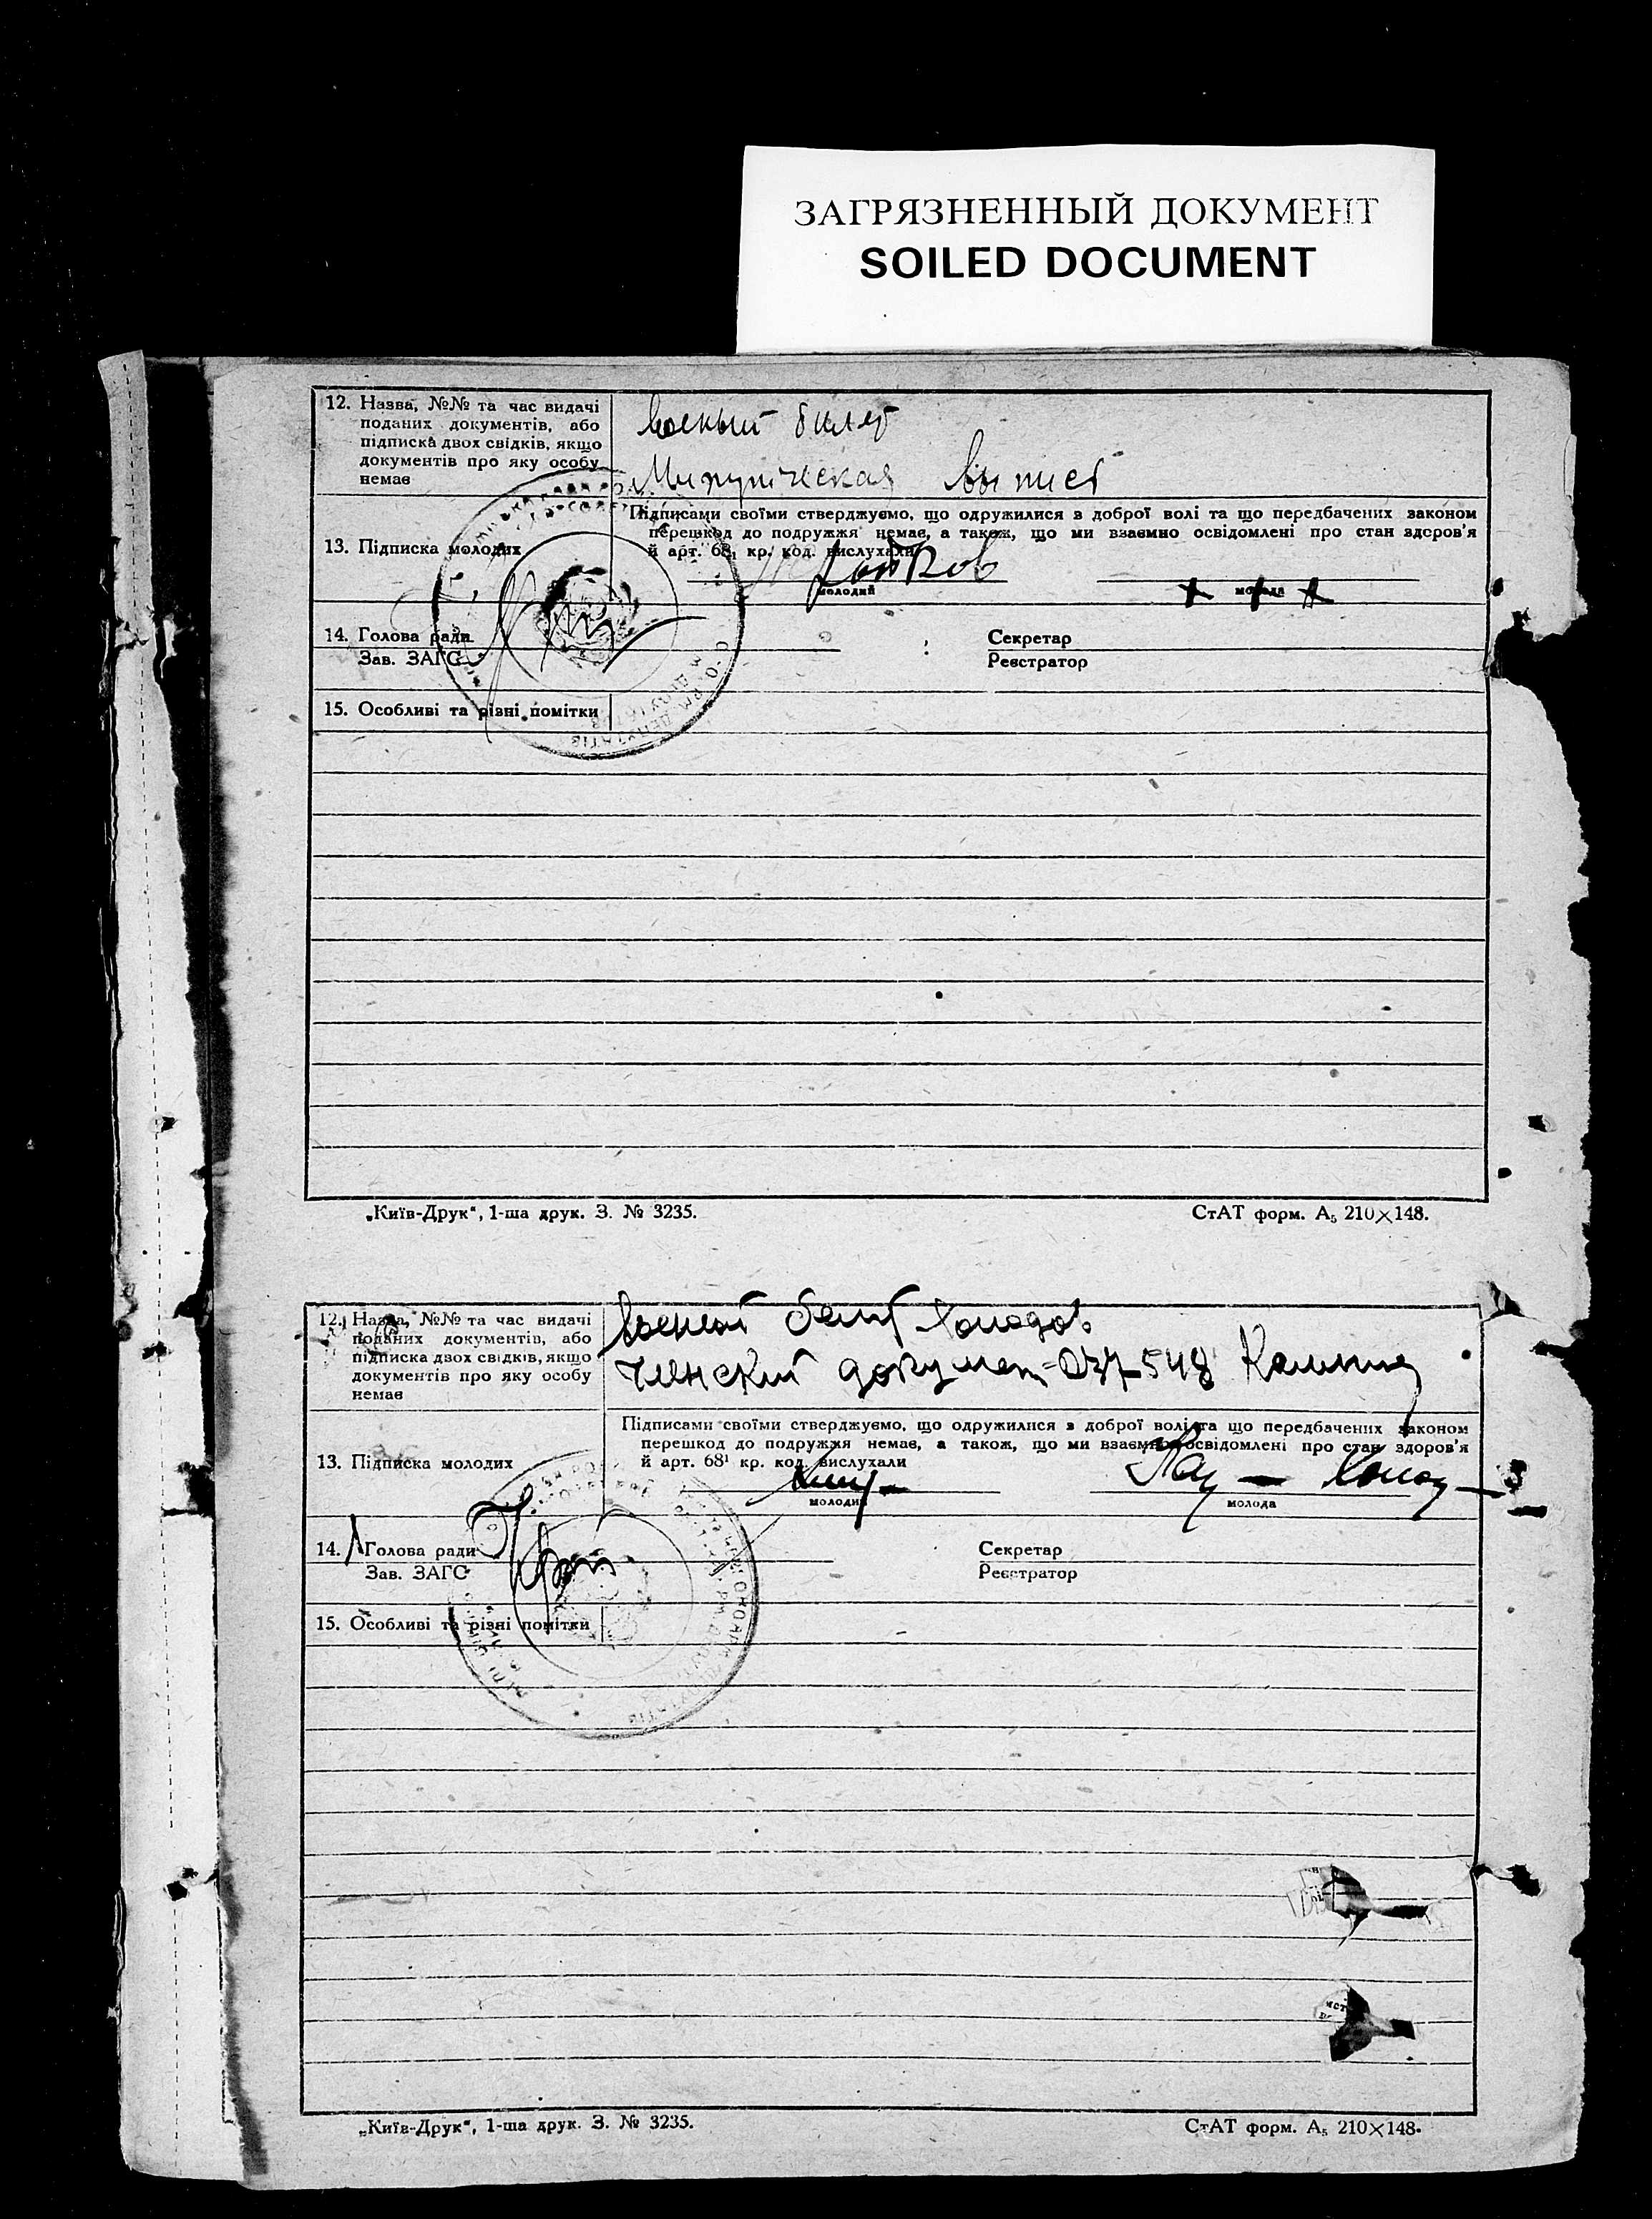 ЗАГРЯЗНЕННЫЙ ДОКУМЕНТ
SOILED DOCUMENT
12. Назва, №№ та час видачі
поданих документів, або
підписка двох свідків, якщо
документів про яку особу
немає
военый билет
выпись
Підписами своїми стверджуємо, що одружилися з доброї волі та що передбачених законом
перешкод до подружжя немає, а також, що ми взаємно освідомлені про стан здоров'я
й арт. 68¹ кр. код. вислухали
13. Підписка молодих
молодий
молода
14. Голова ради
Зав. ЗАГС
Секретар
Реєстратор
15. Особливі та різні помітки
„Київ-Друк“, 1-ша друк. З. № 3235.
СтАТ форм. А₅ 210×148.
12. Назва, №№ та час видачі
поданих документів, або
підписка двох свідків, якщо
документів про яку особу
немає
военый билет
документ 037548
Підписами своїми стверджуємо, що одружилися з доброї волі та що передбачених законом
перешкод до подружжя немає, а також, що ми взаємно освідомлені про стан здоров'я
й арт. 68¹ кр. код. вислухали
13. Підписка молодих
молодий
молода
14. Голова ради
Зав. ЗАГС
Секретар
Реєстратор
15. Особливі та різні помітки
„Київ-Друк“, 1-ша друк. З. № 3235.
СтАТ форм. А₅ 210×148.